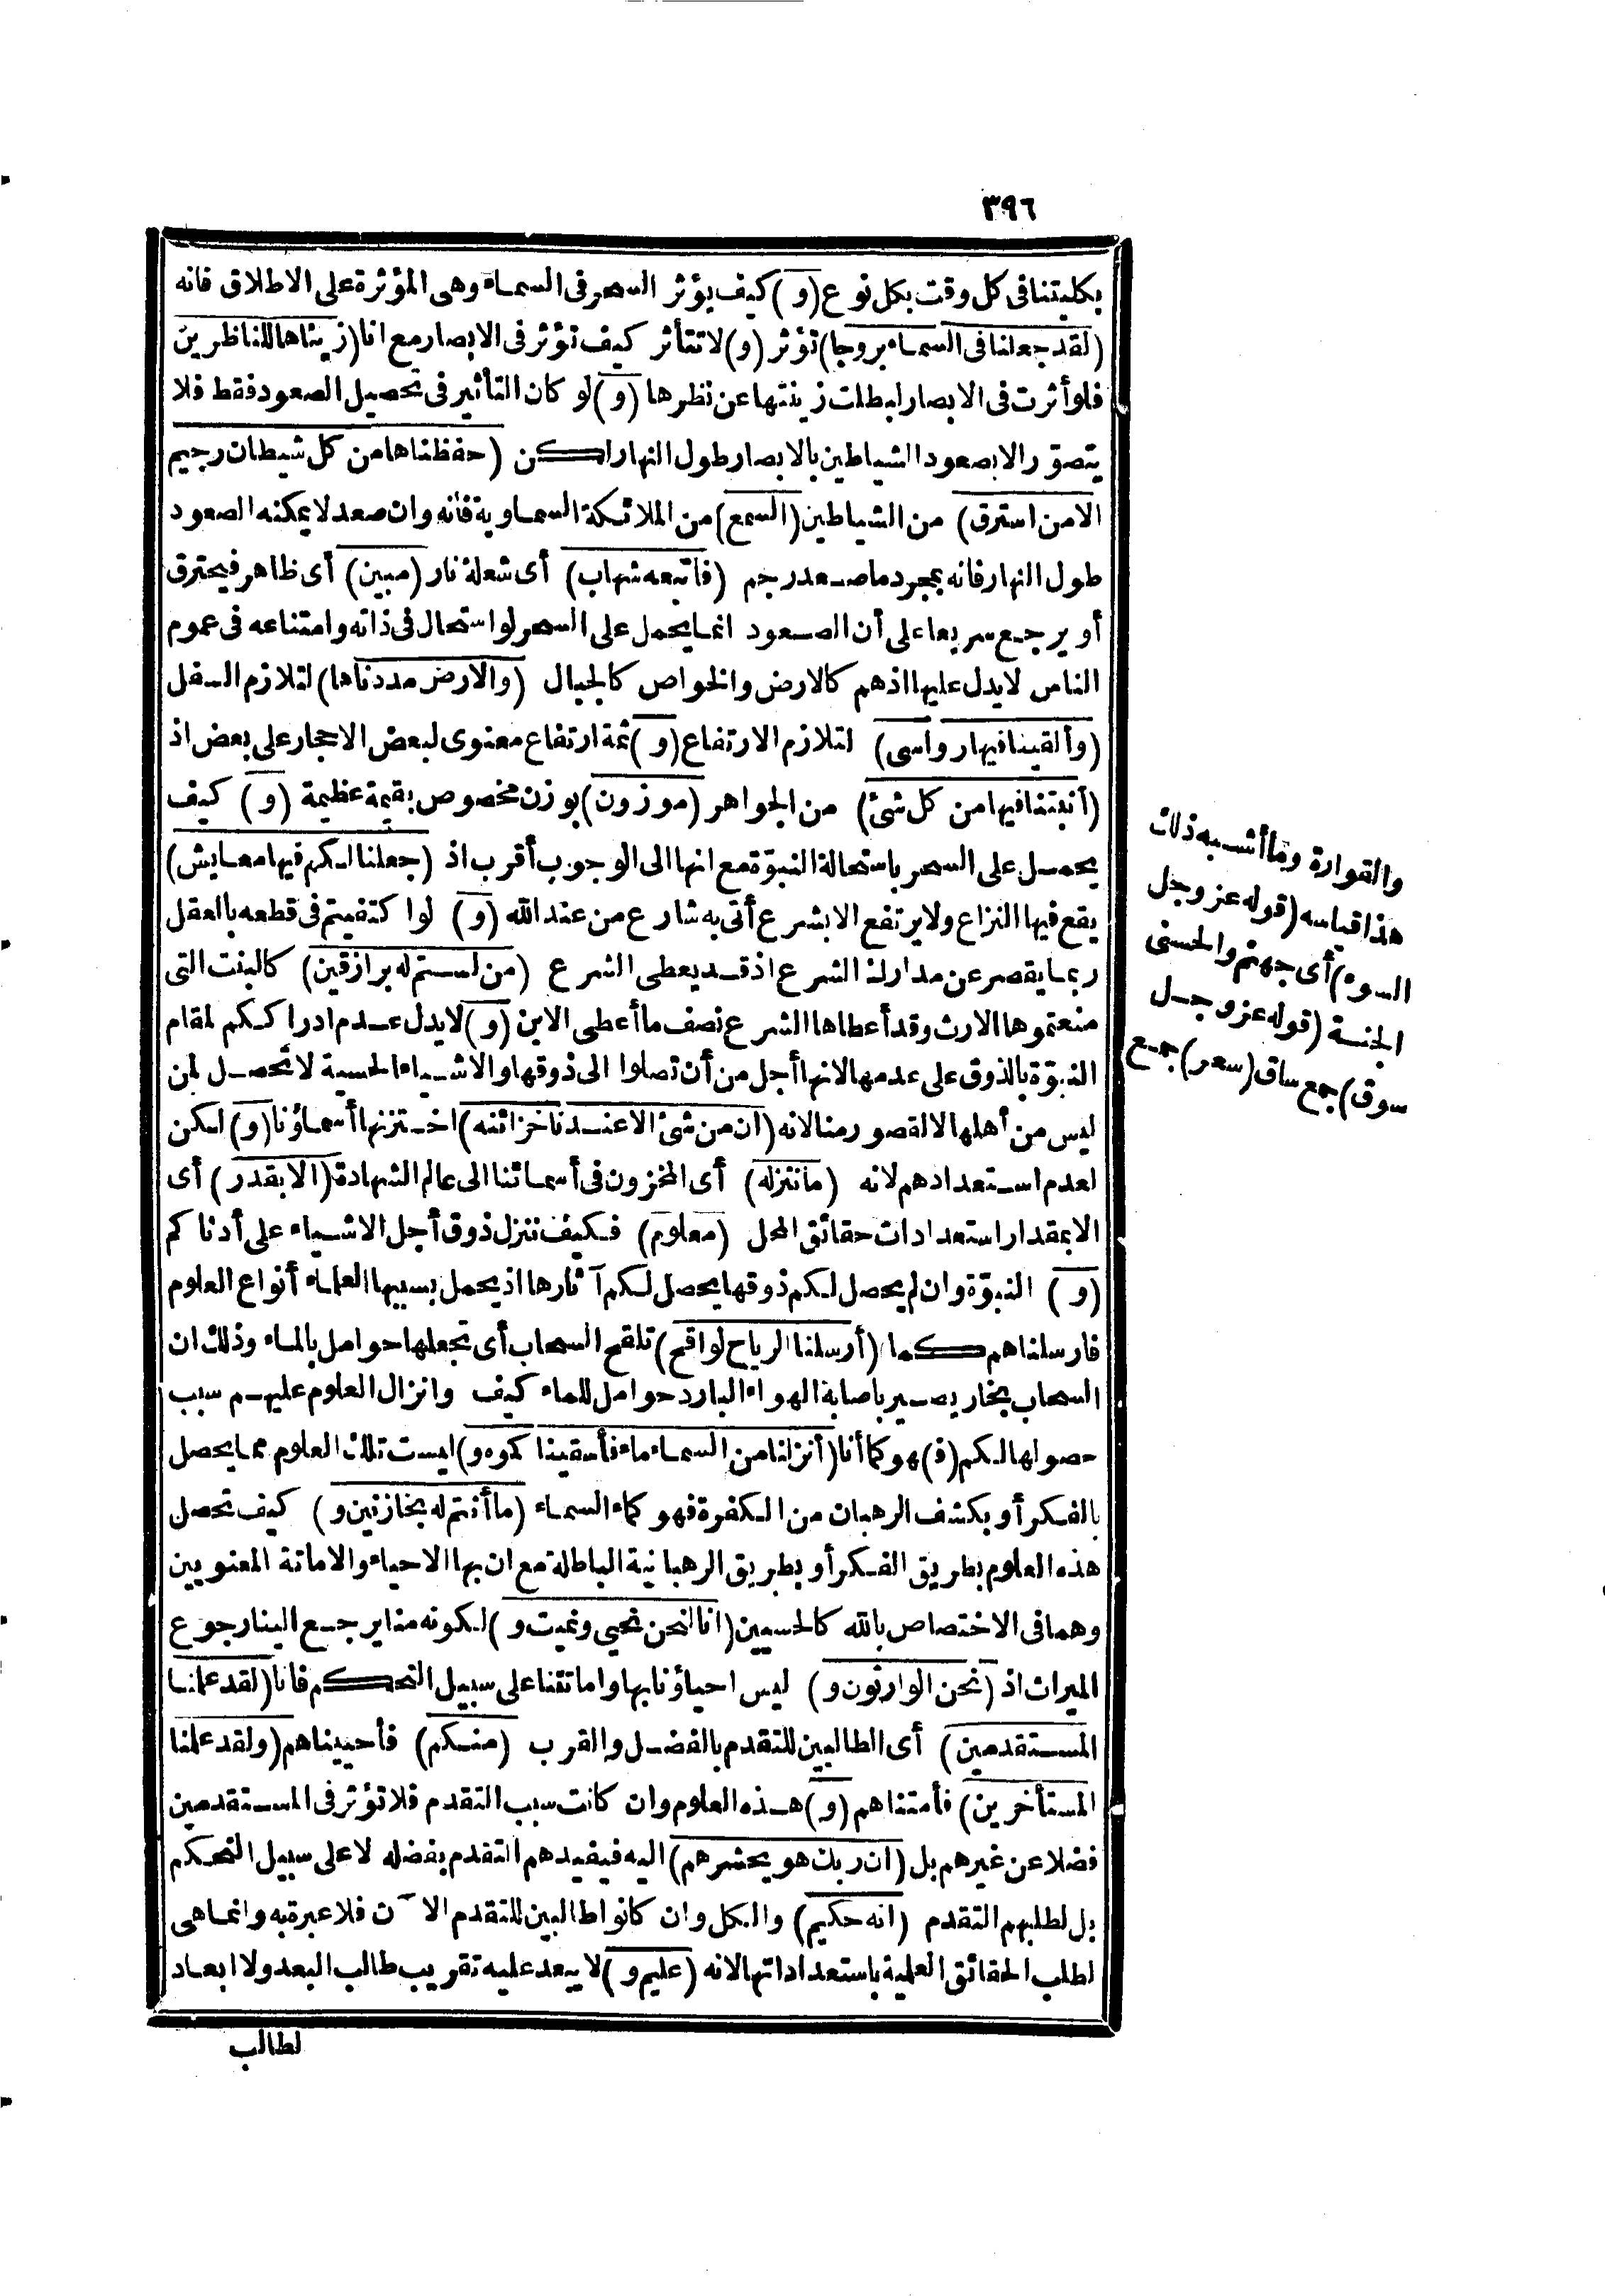 ٣٩٦
بكليتنا فى كل وقت بكل نوع (و) كيف يؤثر السحر فى السماء وهى المؤثرة على الاطلاق فانه
(لقد جعلنا فى السماء بروجا) تؤثر (و) لا تتأثر كيف تؤثر فى الابصار مع انا (زيناها للناظرين
فلو أثرت فى الابصار لبطلت زينتها عن نظرها (و) لو كان التأثير فى تحصيل الصعود فقط فلا
يتصوّر الا بصعود الشياطين بالابصار طول النهار لكن (حفظناها من كل شيطان رجيم
الا من استرق) من الشياطين (السمع) من الملائكة السماوية فانه وان صعد لا يمكنه الصعود
طول النهار فانه بمجرد ما صعد رجم (فاتبعه شهاب) أى شعلة نار (مبين) أى ظاهر فيحترق
أو يرجع سريعا على أن الصعود انما يحمل على السحر لو استحال فى ذاته وامتناعه فى عموم
الناس لا يدل عليها اذهم كالارض والخواص كالجبال (والارض مددناها) لتلازم السفل
(وألقينا فيها رواسى) لتلازم الارتفاع (و) ثمة ارتفاع معنوى لبعض الاحجار على بعض اذ
(أنبتنا فيها من كل شئ) من الجواهر (موزون) بوزن مخصوص بقيمة عظيمة (و) كيف
يحمل على السحر باستحالة النبوّة مع انها الى الوجوب أقرب اذ (جعلنا لكم فيها معايش)
يقع فيها النزاع ولا يرتفع الا بشرع أتى به شارع من عند الله (و) لو اكتفيتم فى قطعه بالعقل
ربما يقصر عن مدارك الشرع اذ قد يعطى الشرع (من لستم له برازقين) كالبنت التى
منعتموها الارث وقد أعطاها الشرع نصف ما أعطى الابن (و) لا يدل عدم ادراككم لمقام
النبوّة بالذوق على عدمها لانها أجل من أن تصلوا الى ذوقها والاشياء الحسية لا تحصل لمن
ليس من أهلها الا لقصور منا لانه (ان من شئ الا عندنا خزائنه) اختزنها أسماؤنا (و) لكن
لعدم استعدادهم لانه (ما ننزله) أى المخزون فى أسمائنا الى عالم الشهادة (الا بقدر) أى
الا بمقدار استعدادات حقائق المحل (معلوم) فكيف ننزل ذوق أجل الاشياء على أدناكم
(و) النبوّة وان لم يحصل لكم ذوقها يحصل لكم آثارها اذ يحمل بسببها العلماء أنواع العلوم
فارسلناهم كما (أرسلنا الرياح لواقح) تلقح السحاب أى تجعلها حوامل بالماء وذلك ان
السحاب بخار يصير باصابة الهواء البارد حوامل للماء كيف وانزال العلوم عليهم سبب
حصولها لكم (ف) هو كما أنا (أنزلنا من السماء ماء فأسقينا كموه و) ليست تلك العلوم مما يحصل
بالفكر أو بكشف الرهبان من الكفرة فهو كماء السماء (ما أنتم له بخازنين و) كيف تحصل
هذه العلوم بطريق الفكر أو بطريق الرهبانية الباطلة مع ان بها الاحياء والاماتة المعنويين
وهما فى الاختصاص بالله كالحسيين (انا لنحن نحيى ونميت و) لكونه منا يرجع الينا رجوع
الميراث اذ (نحن الوارثون و) ليس احياؤنا بها واماتتنا على سبيل التحكم فانا (لقد علمنا
المستقدمين) أى الطالبين للتقدم بالفضل والقرب (منكم) فأحييناهم (ولقد علمنا
المستأخرين) فأمتناهم (و) هذه العلوم وان كانت سبب التقدم فلا تؤثر فى المستقدمين
فضلا عن غيرهم بل (ان ربك هو يحشرهم) اليه فيفيدهم التقدم بفضله لا على سبيل التحكم
بل لطلبهم التقدم (انه حكيم) والكل وان كانوا طالبين للتقدم الآن فلا عبرة به وانما هى
لطلب الحقائق العلمية باستعداداتها لانه (عليم و) لا يبعد عليه تقريب طالب البعد ولا ابعاد
لطالب
والقوارة وما أشبه ذلك
هذا قياسه (قوله عز وجل
السوء) أى جهنم والحسنى
الجنة (قوله عز وجل
سوق) جمع ساق (سعر) جمع